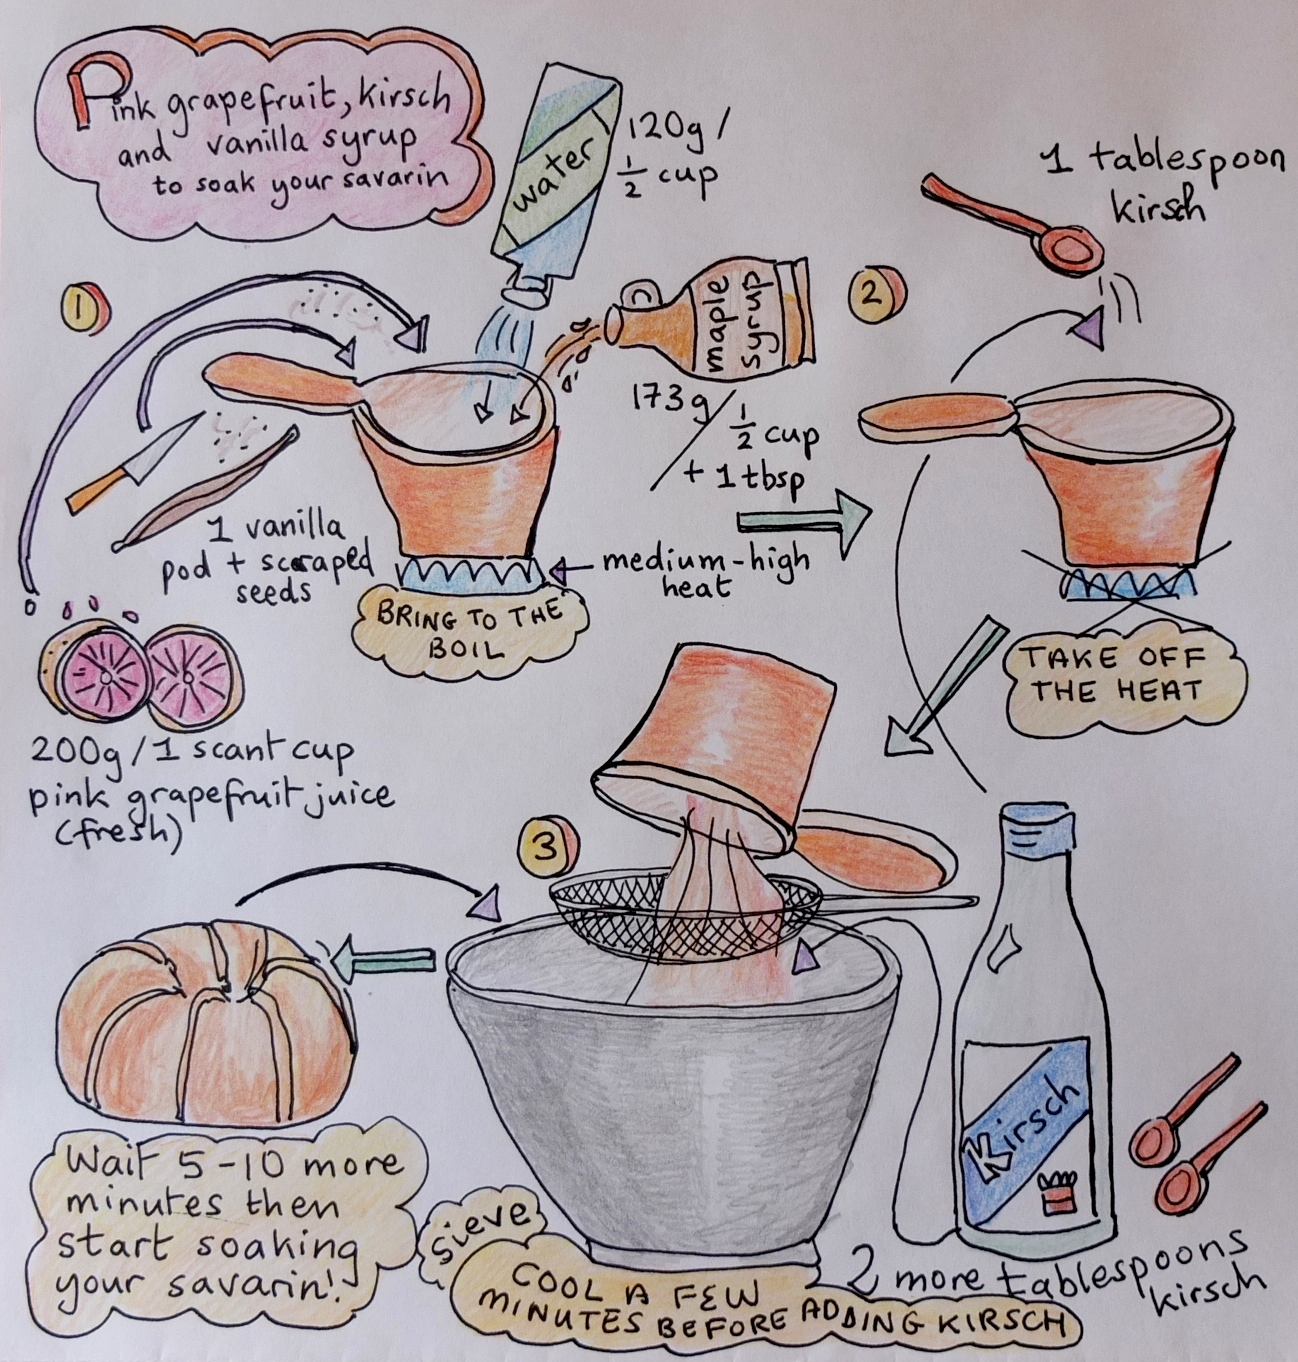 Pink grapefruit, kirsch
and vanilla syrup
to soak your savarin
water
120g /
1/2 cup
1 tablespoon
kirsch
1
maple
syrup
2
173g / 1/2 cup
+ 1 tbsp
1 vanilla
pod + scraped
seeds
medium-high
heat
BRING TO THE
BOIL
TAKE OFF
THE HEAT
200g / 1 scant cup
pink grapefruit juice
(fresh)
3
Kirsch
Wait 5-10 more
minutes then
start soaking
your savarin!
Sieve
COOL A FEW
MINUTES BEFORE ADDING KIRSCH
2 more tablespoons
kirsch